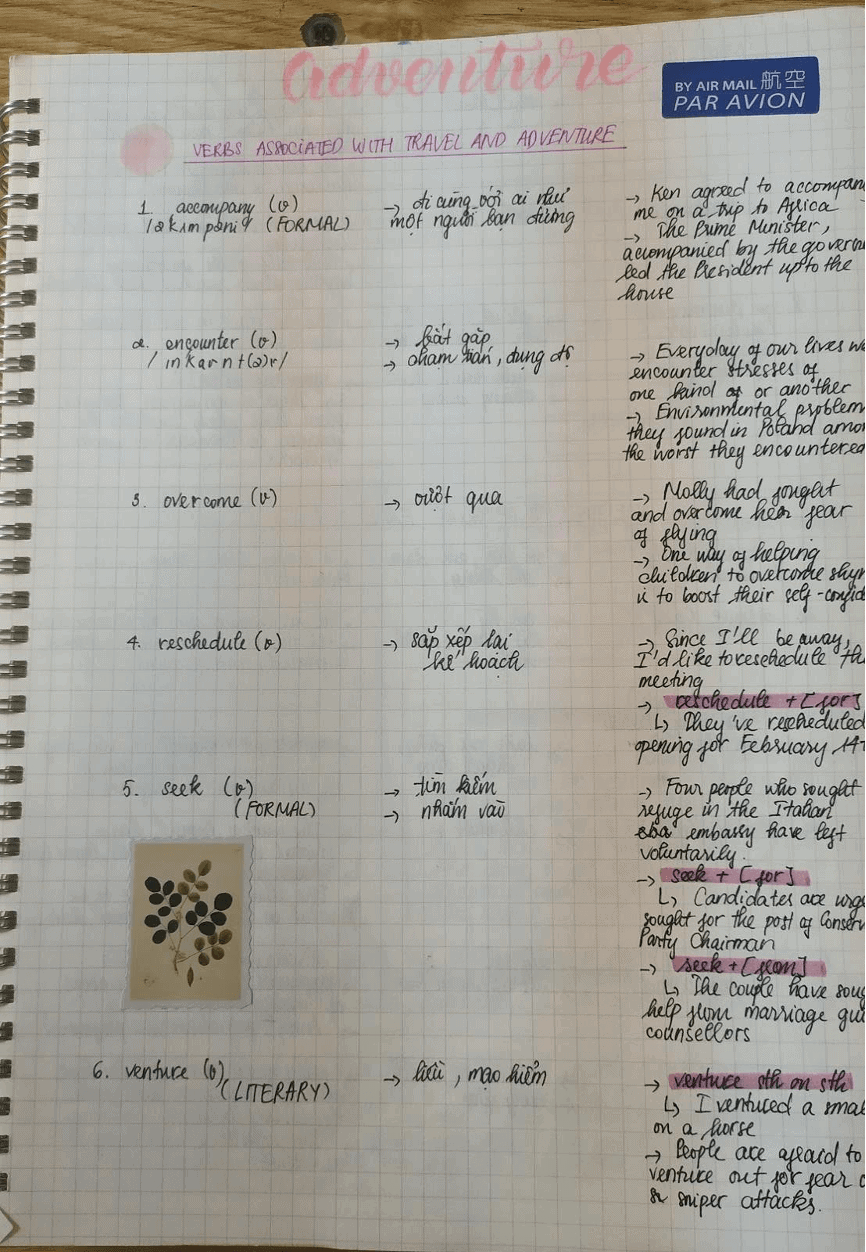 adventure
BY AIR MAIL 航空
PAR AVION
VERBS ASSOCIATED WITH TRAVEL AND ADVENTURE
1. accompany (v)
(FORMAL)
→ đi cùng với ai như
một người bạn đường
→ Ken agreed to accompan
me on a trip to Africa
→ The Prime Minister,
accompanied by the govern
led the President up to the
house
2. encounter (v)
→ bắt gặp
→ chạm trán, đụng độ
→ Everyday of our lives we
encounter stresses of
one kind of or another
→ Environmental problem
they found in Poland amo
the worst they encountered
3. overcome (v)
→ vượt qua
→ Molly had fought
and overcome her fear
of flying
→ One way of helping
children to overcome shyn
is to boost their self-confid
4. reschedule (v)
→ sắp xếp lại
kế hoạch
→ Since I'll be away,
I'd like to reschedule th
meeting
→ reschedule + [for]
↳ They've rescheduled
opening for February 14
5. seek (v)
(FORMAL)
→ tìm kiếm
→ nhắm vào
→ Four people who sought
refuge in the Italian
embassy have left
voluntarily.
→ seek + [for]
↳ Candidates are urge
sought for the post of Conser
Party Chairman
→ seek + [from]
↳ The couple have soug
help from marriage gui
counsellors
6. venture (v)
(LITERARY)
→ liều, mạo hiểm
→ venture sth on sth
↳ I ventured a smal
on a horse
→ People are afraid to
venture out for fear o
sniper attacks.